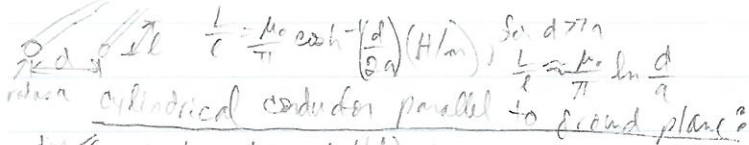 d l L/l = μ₀/π cosh⁻¹(d/2a) (H/m), for d >> a
radius a L/l = μ₀/π ln d/a
cylindrical conductor parallel to ground plane: